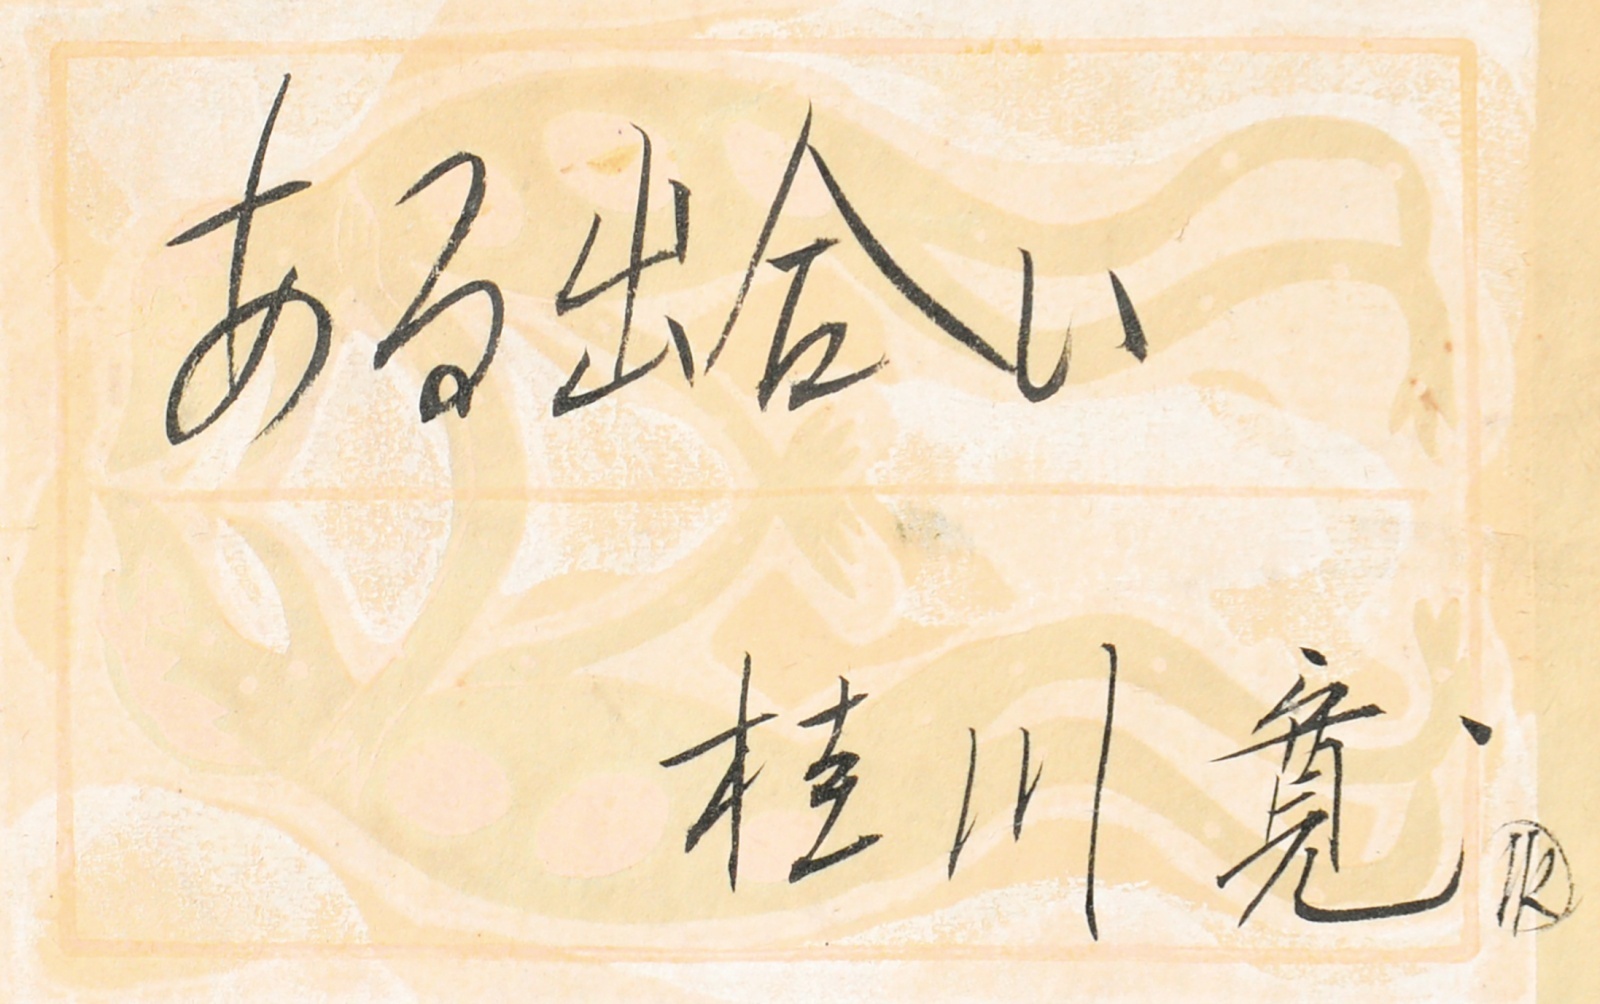 ある出合い
桂川寛